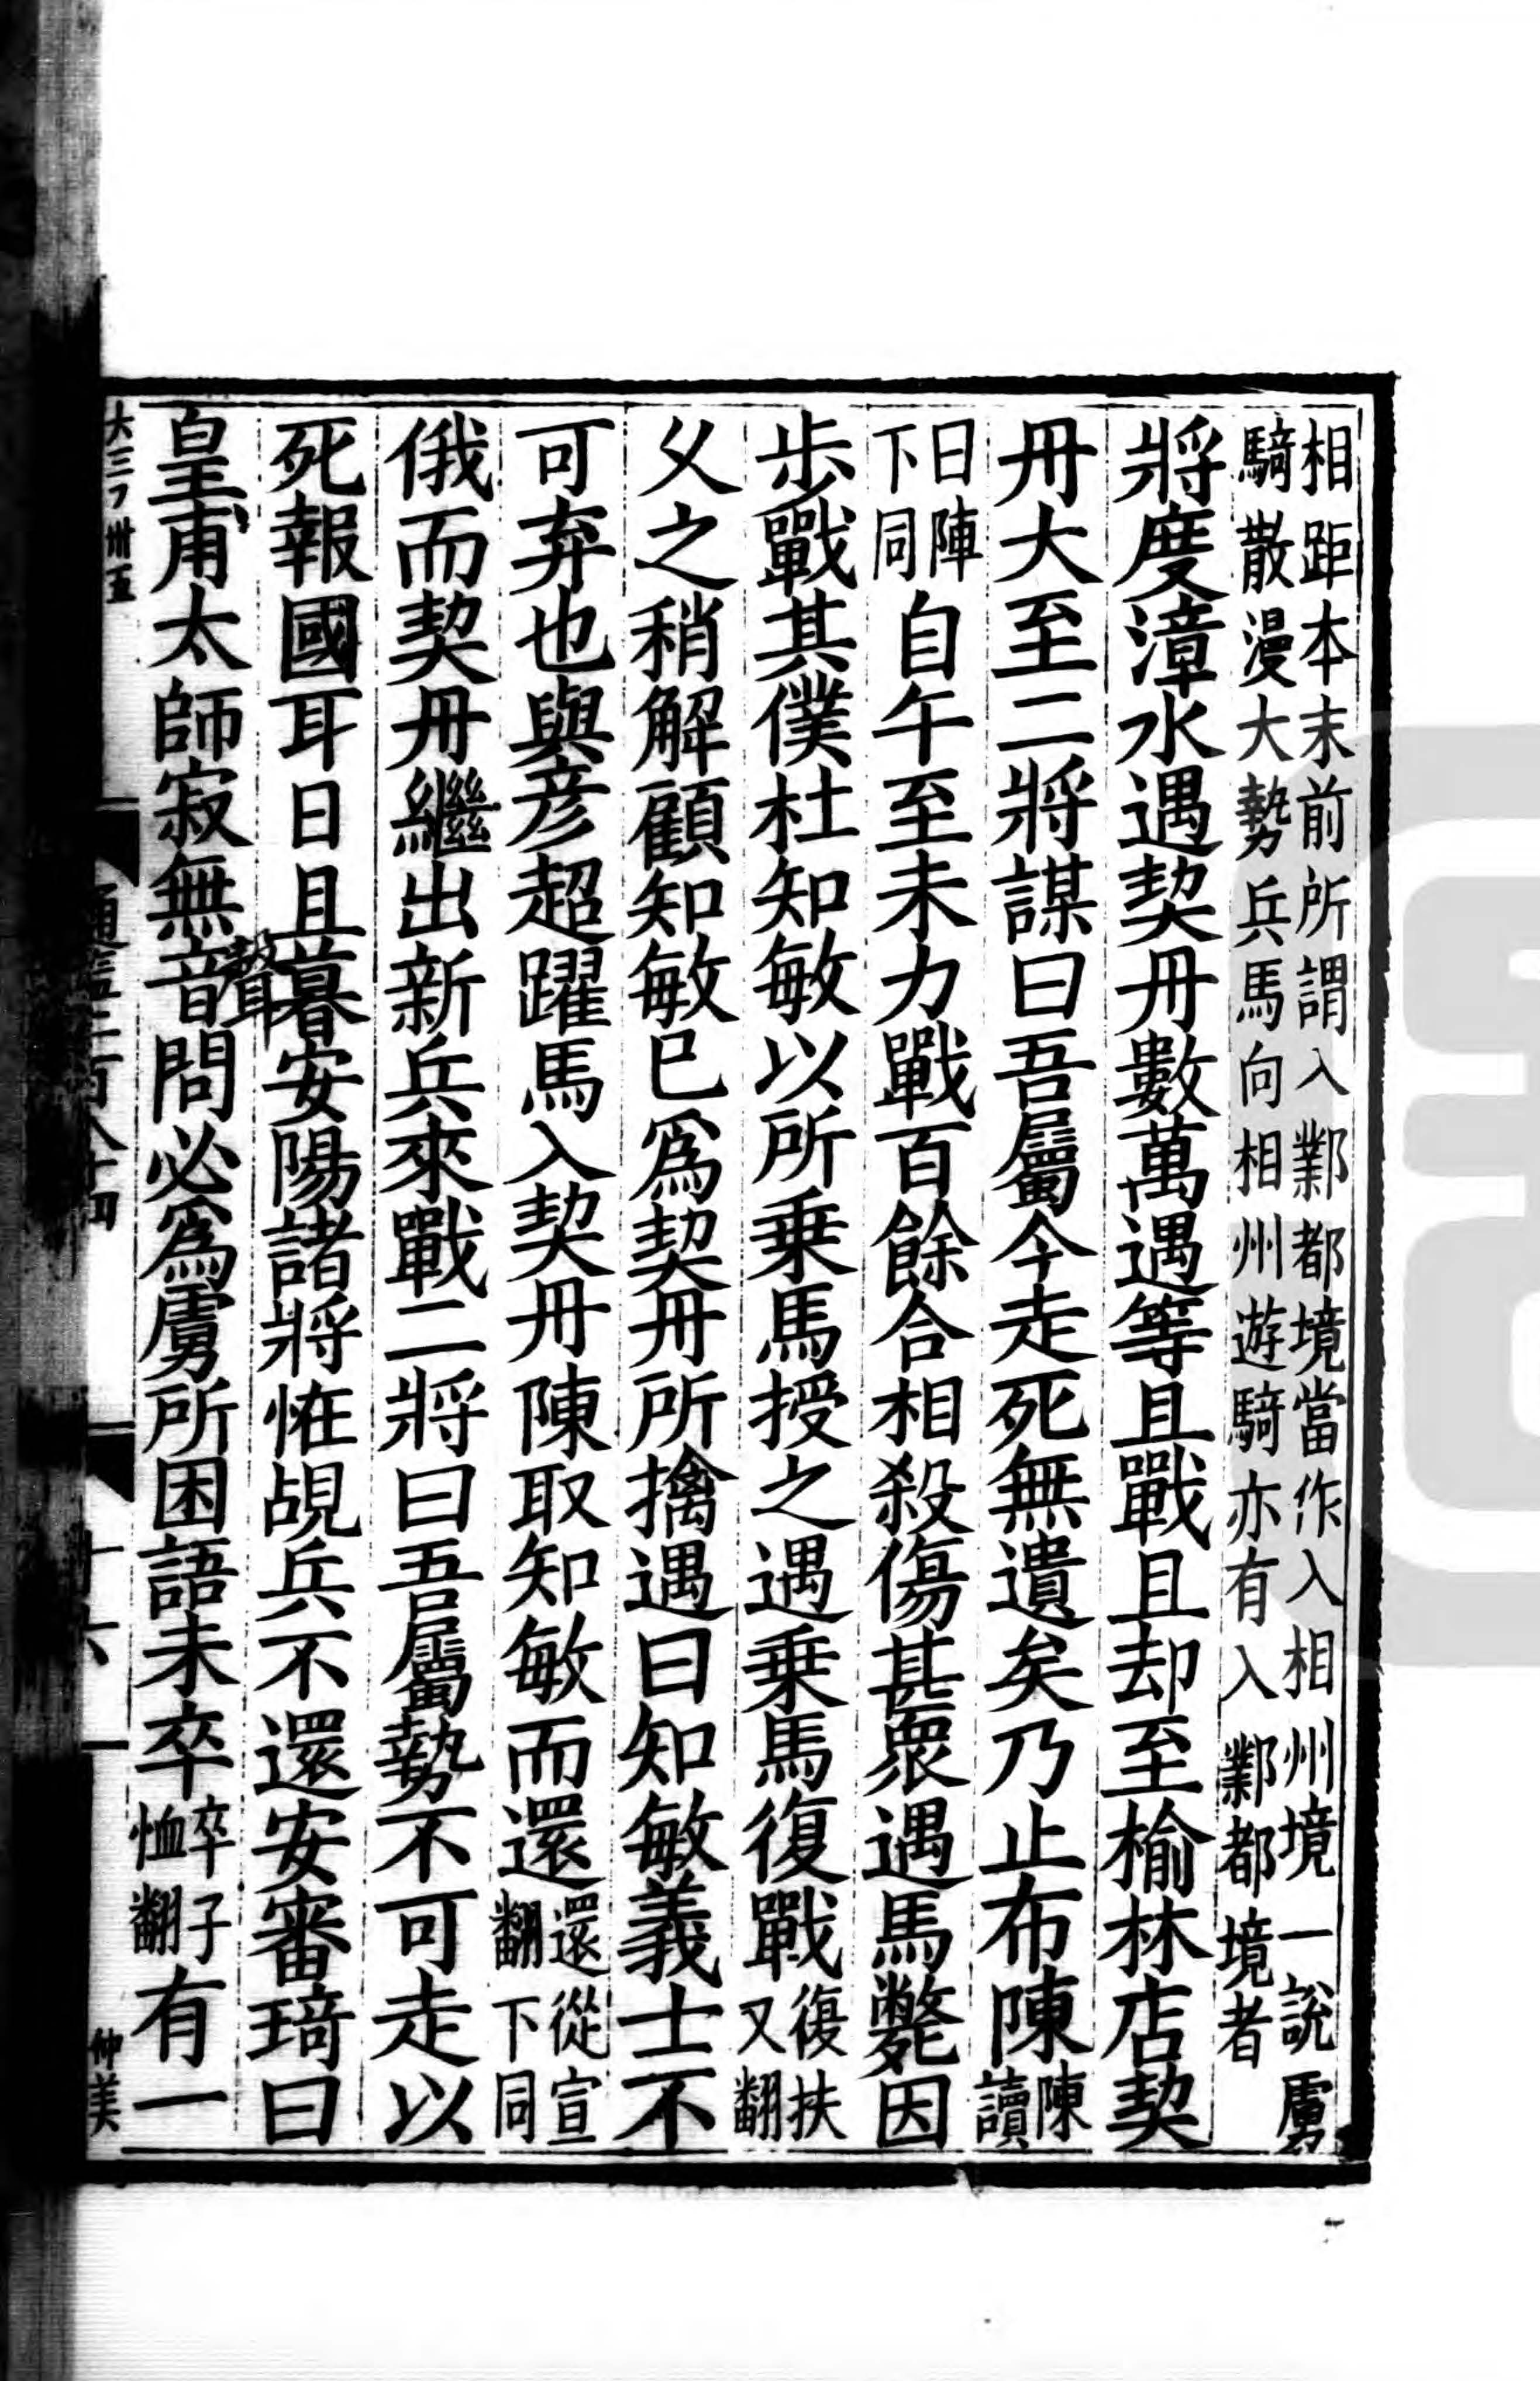 相距本末前所謂入鄴都境當作入相州境一說虜
騎散漫大勢兵馬向相州遊騎亦有入鄴都境者
將度漳水遇契丹數萬遇等且戰且却至榆林店契
丹大至二將謀曰吾屬今走死無遺矣乃止布陳陳讀
曰陣下同自午至未力戰百餘合相殺傷甚衆遇馬斃因
步戰其僕杜知敏以所乗馬授之遇乗馬復戰復扶又翻
乆之稍解顧知敏已爲契丹所擒遇曰知敏義士不
可弃也與彦超躍馬入契丹陳取知敏而還還從宣翻下同
俄而契丹繼出新兵來戰二將曰吾屬勢不可走以
死報國耳日且暮安陽諸將恠覘兵不還安審琦曰
皇甫太師寂無音問必爲虜所困語未卒卒子恤翻有一
聲
大三フ卅五
通鑑二百八十四
十六
仲美